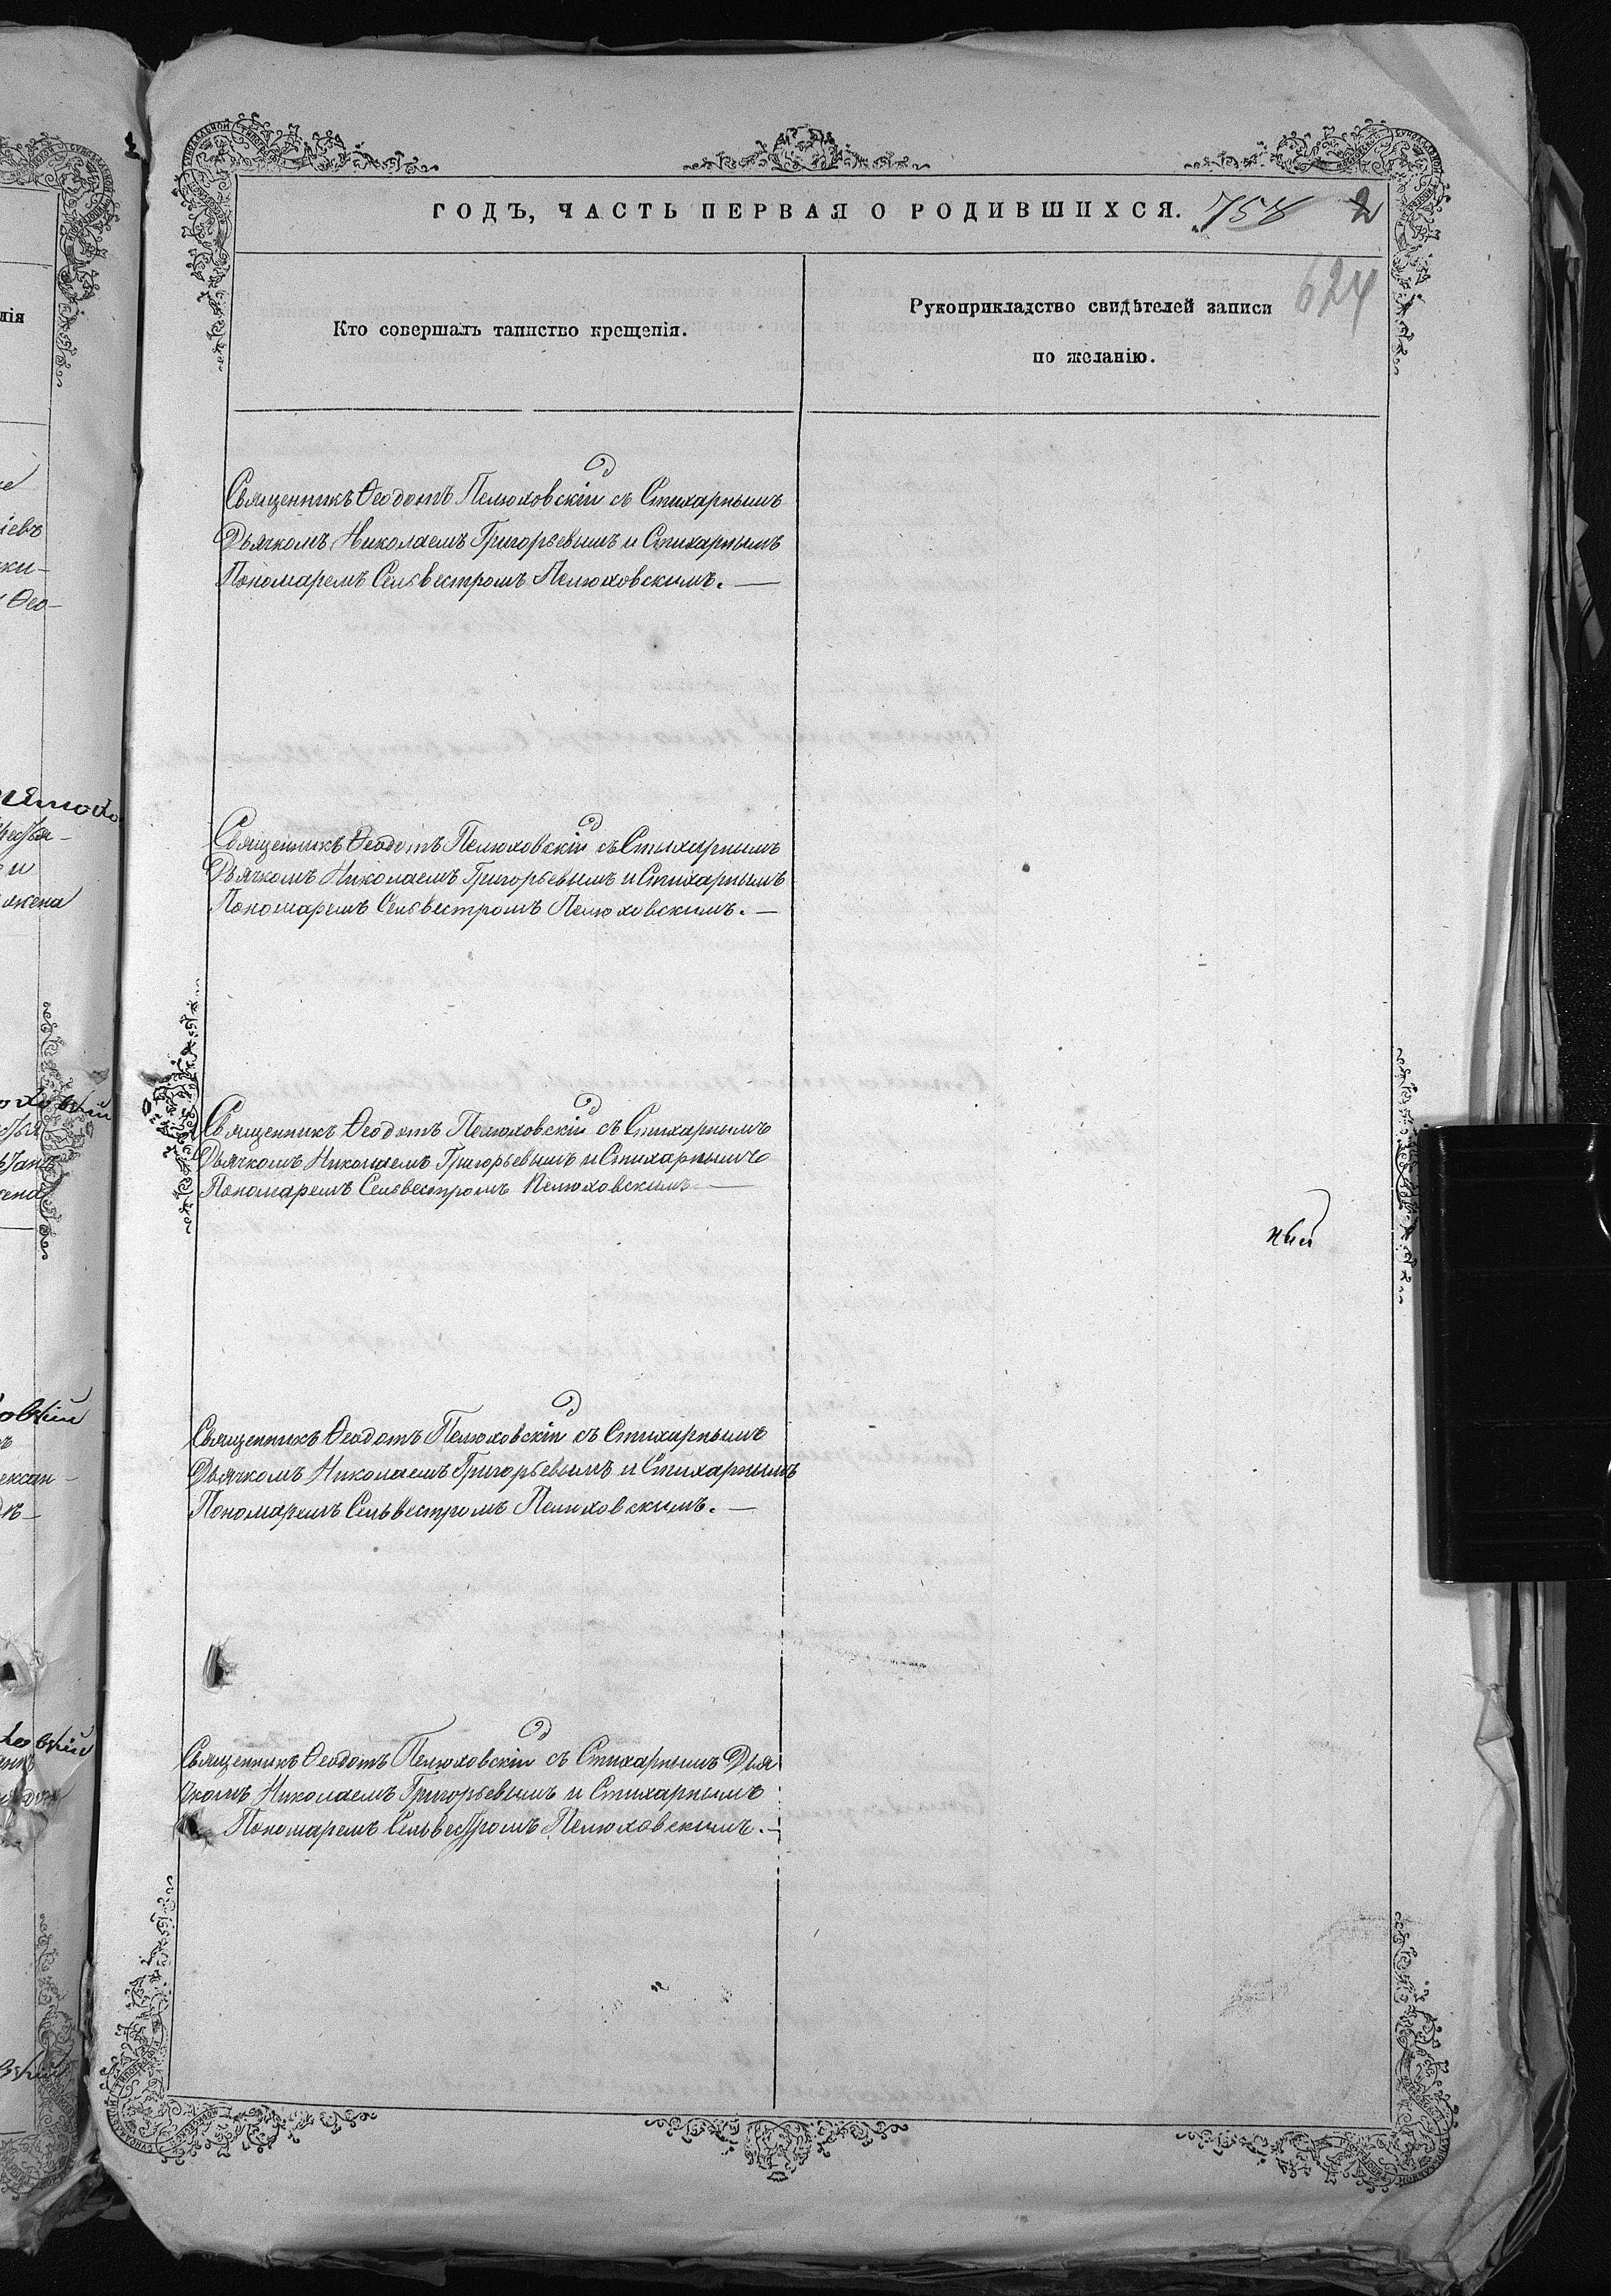 ГОДЪ, ЧАСТЬ ПЕРВАЯ О РОДИВШИХСЯ. 758 2
624
Кто совершалъ таинство крещенія.
Рукоприкладство свидѣтелей записи
по желанію.
Священникъ Ѳеодотъ Пелюховскій съ Стихарнымъ
Дьячкомъ Николаемъ Григорьевымъ и Стихарнымъ
Пономаремъ Сельвестромъ Пелюховскимъ. —
Священникъ Ѳеодотъ Пелюховскій съ Стихарнымъ
Дьячкомъ Николаемъ Григорьевымъ и Стихарнымъ
Пономаремъ Сельвестромъ Пелюховскимъ. —
Священникъ Ѳеодотъ Пелюховскій съ Стихарнымъ
Дьячкомъ Николаемъ Григорьевымъ и Стихарнымъ
Пономаремъ Сельвестромъ Пелюховскимъ —
ный
Священникъ Ѳеодотъ Пелюховскій съ Стихарнымъ
Дьячкомъ Николаемъ Григорьевымъ и Стихарнымъ
Пономаремъ Сельвестромъ Пелюховскимъ. —
Священникъ Ѳеодотъ Пелюховскій съ Стихарнымъ Дья
чкомъ Николаемъ Григорьевымъ и Стихарнымъ
Пономаремъ Сельвестромъ Пелюховскимъ. —